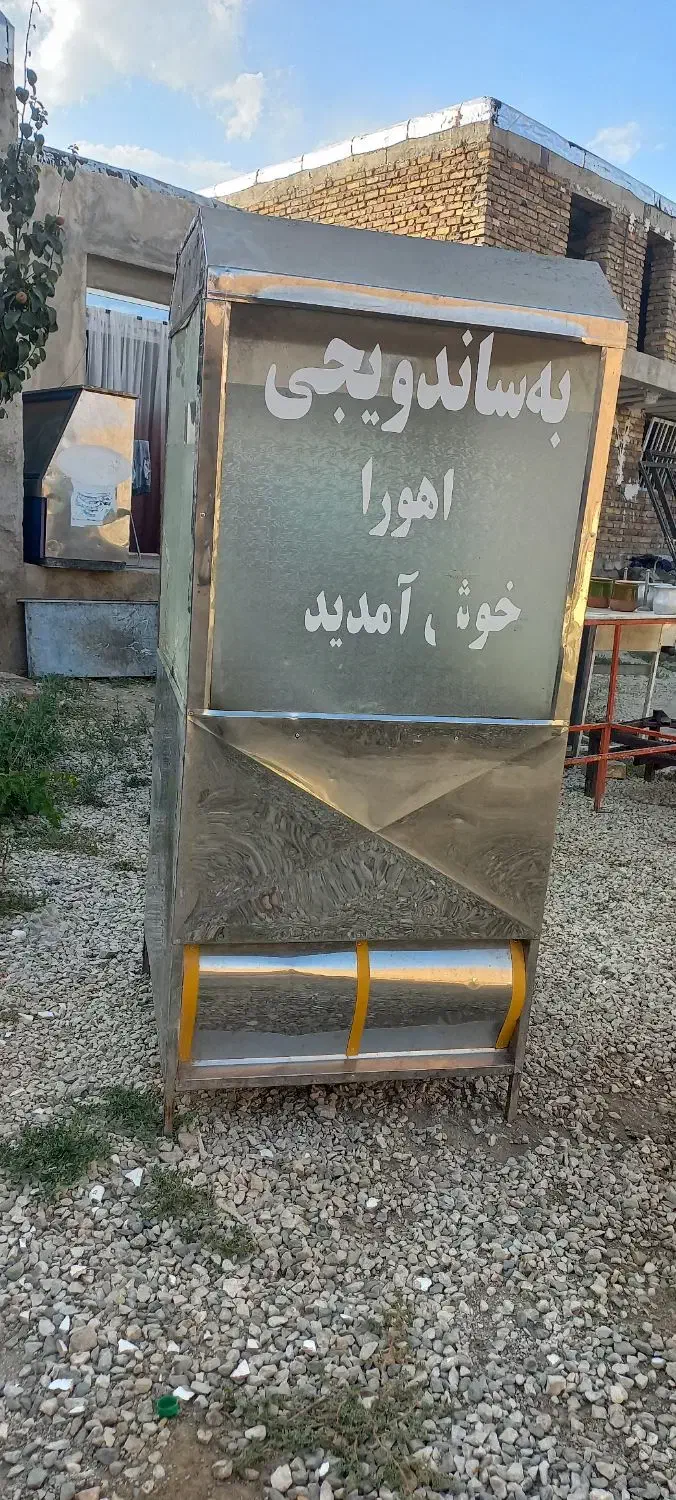 به ساندویجی
اهورا
خوش آمدید